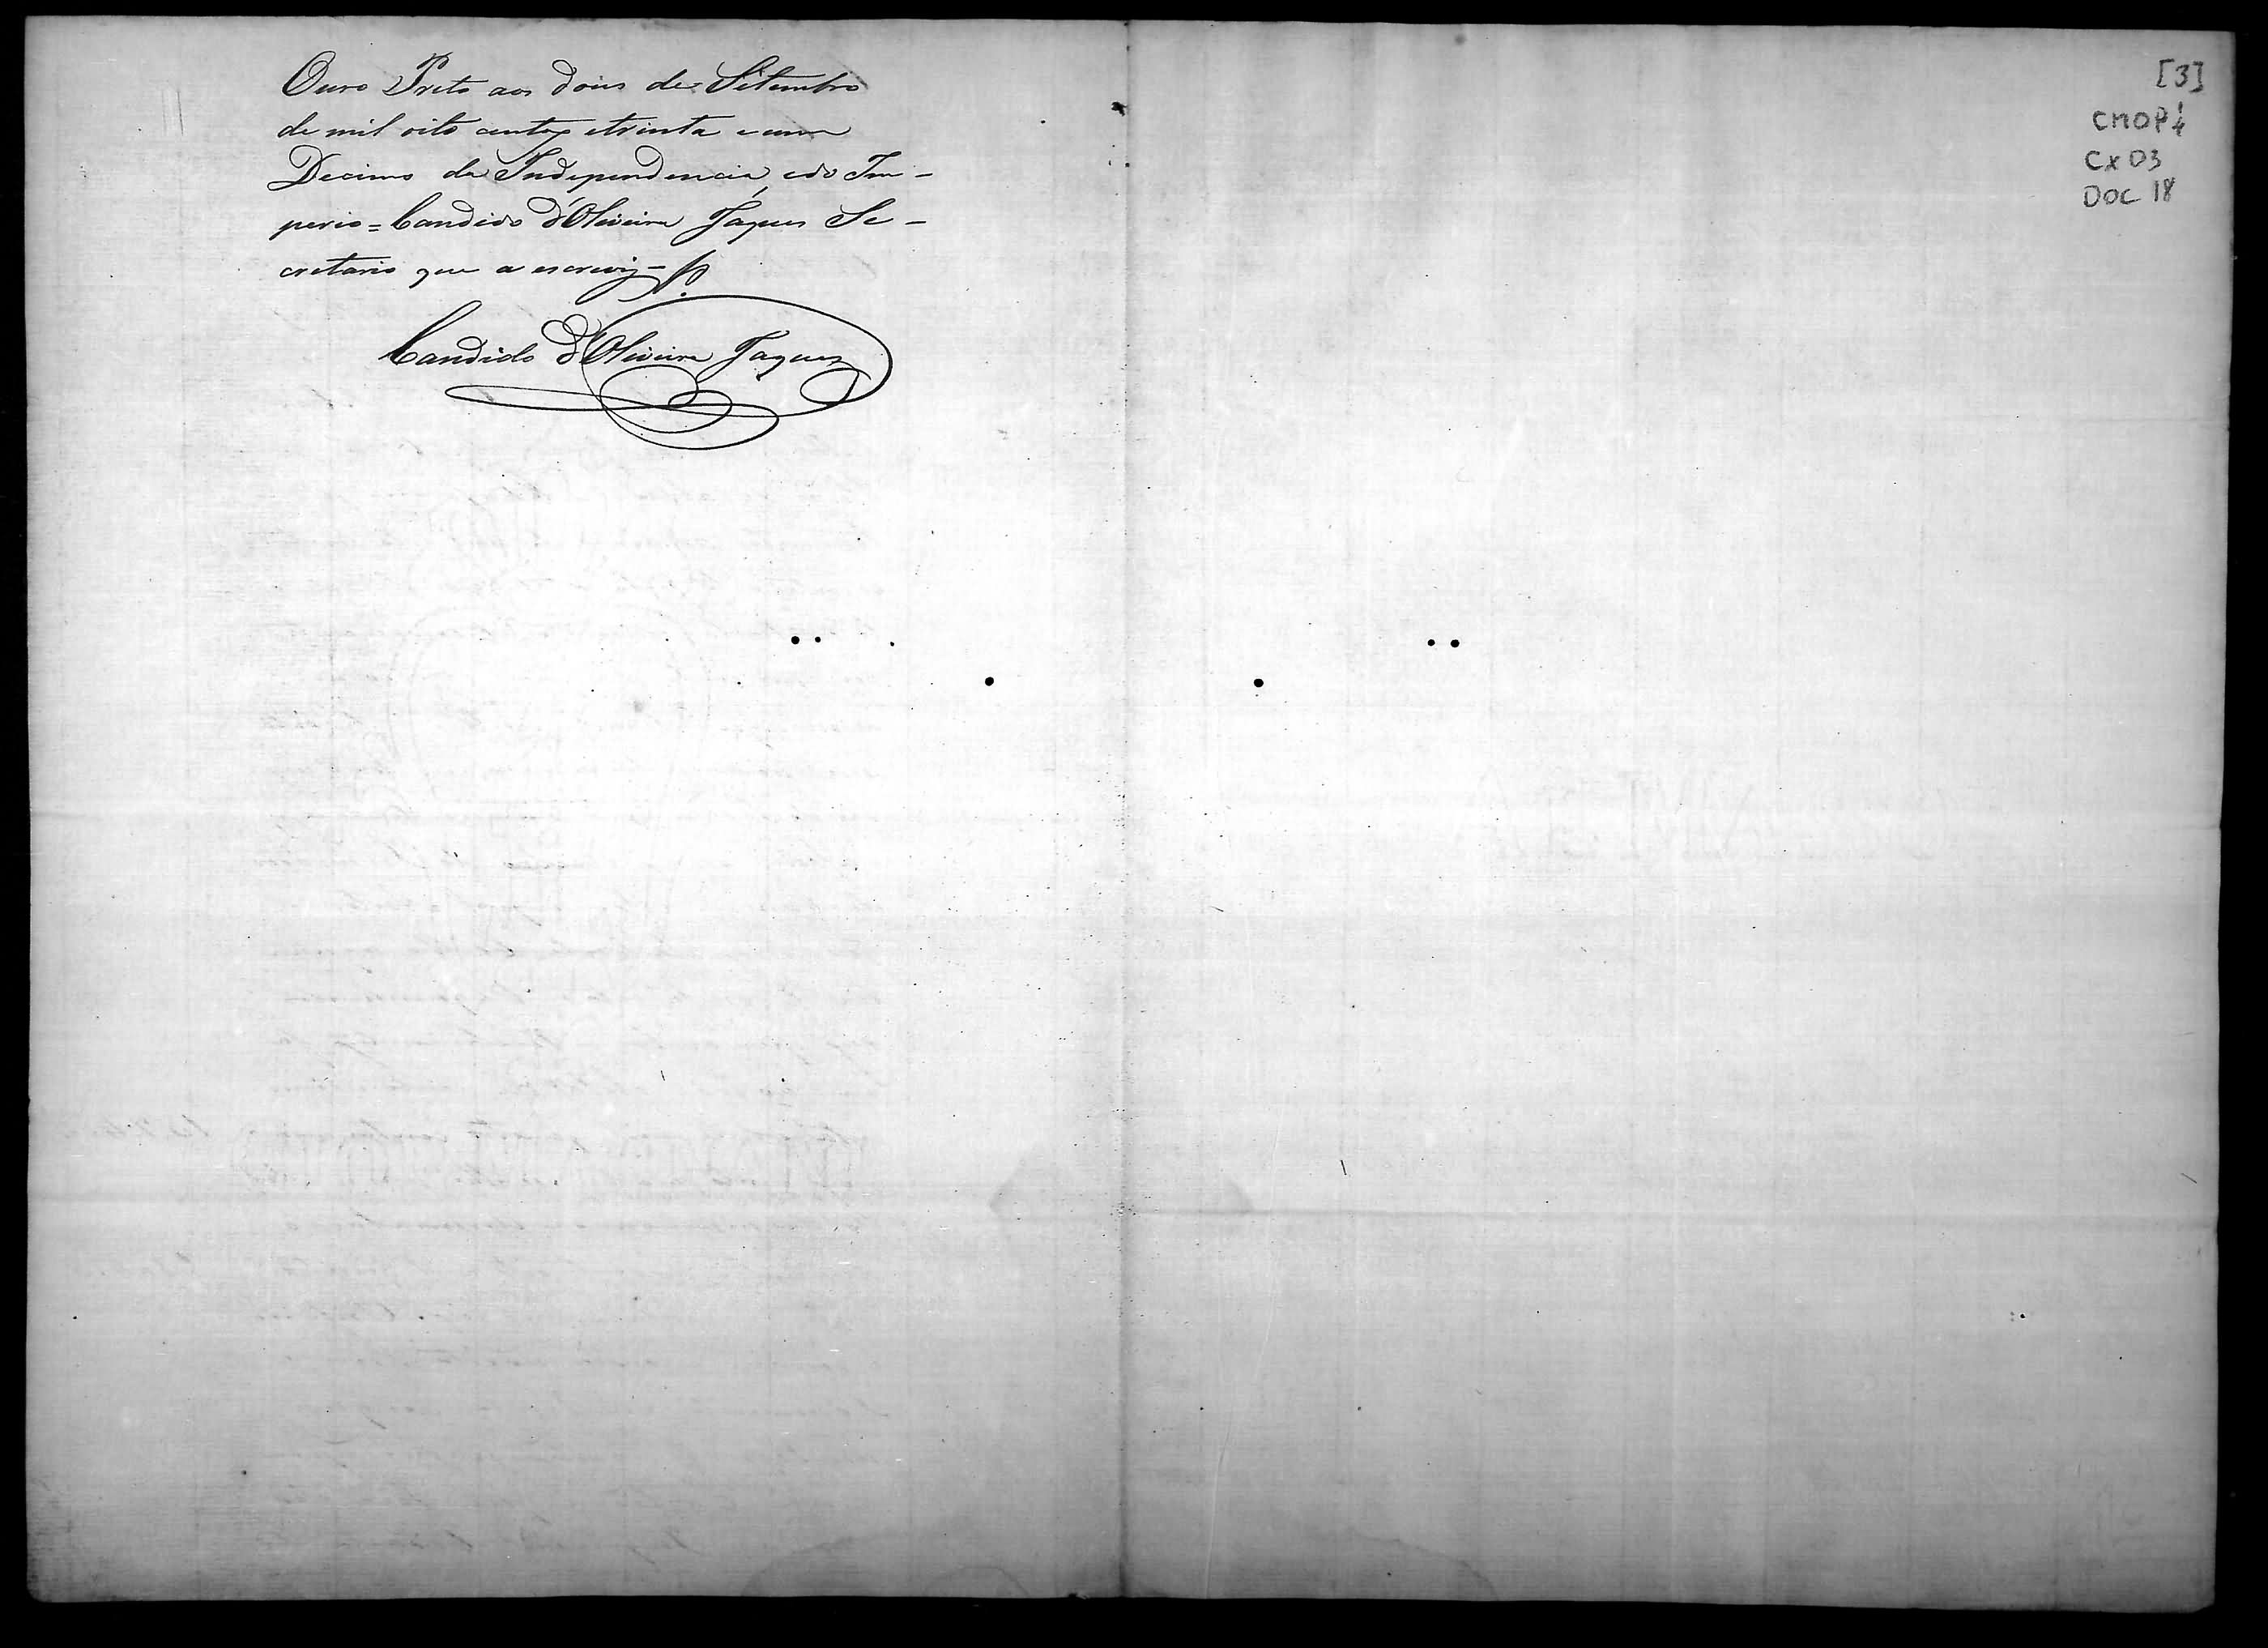 Ouro Preto aos dous de Setembro
de mil oito centos e trinta e um
Decimo da Independencia, e do Im-
perio = Candido d'Oliveira Jaques Se-
cretario que a escrevy -
Candido d'Oliveira Jaques
[3]
CMOP
Cx 03
DOC 18